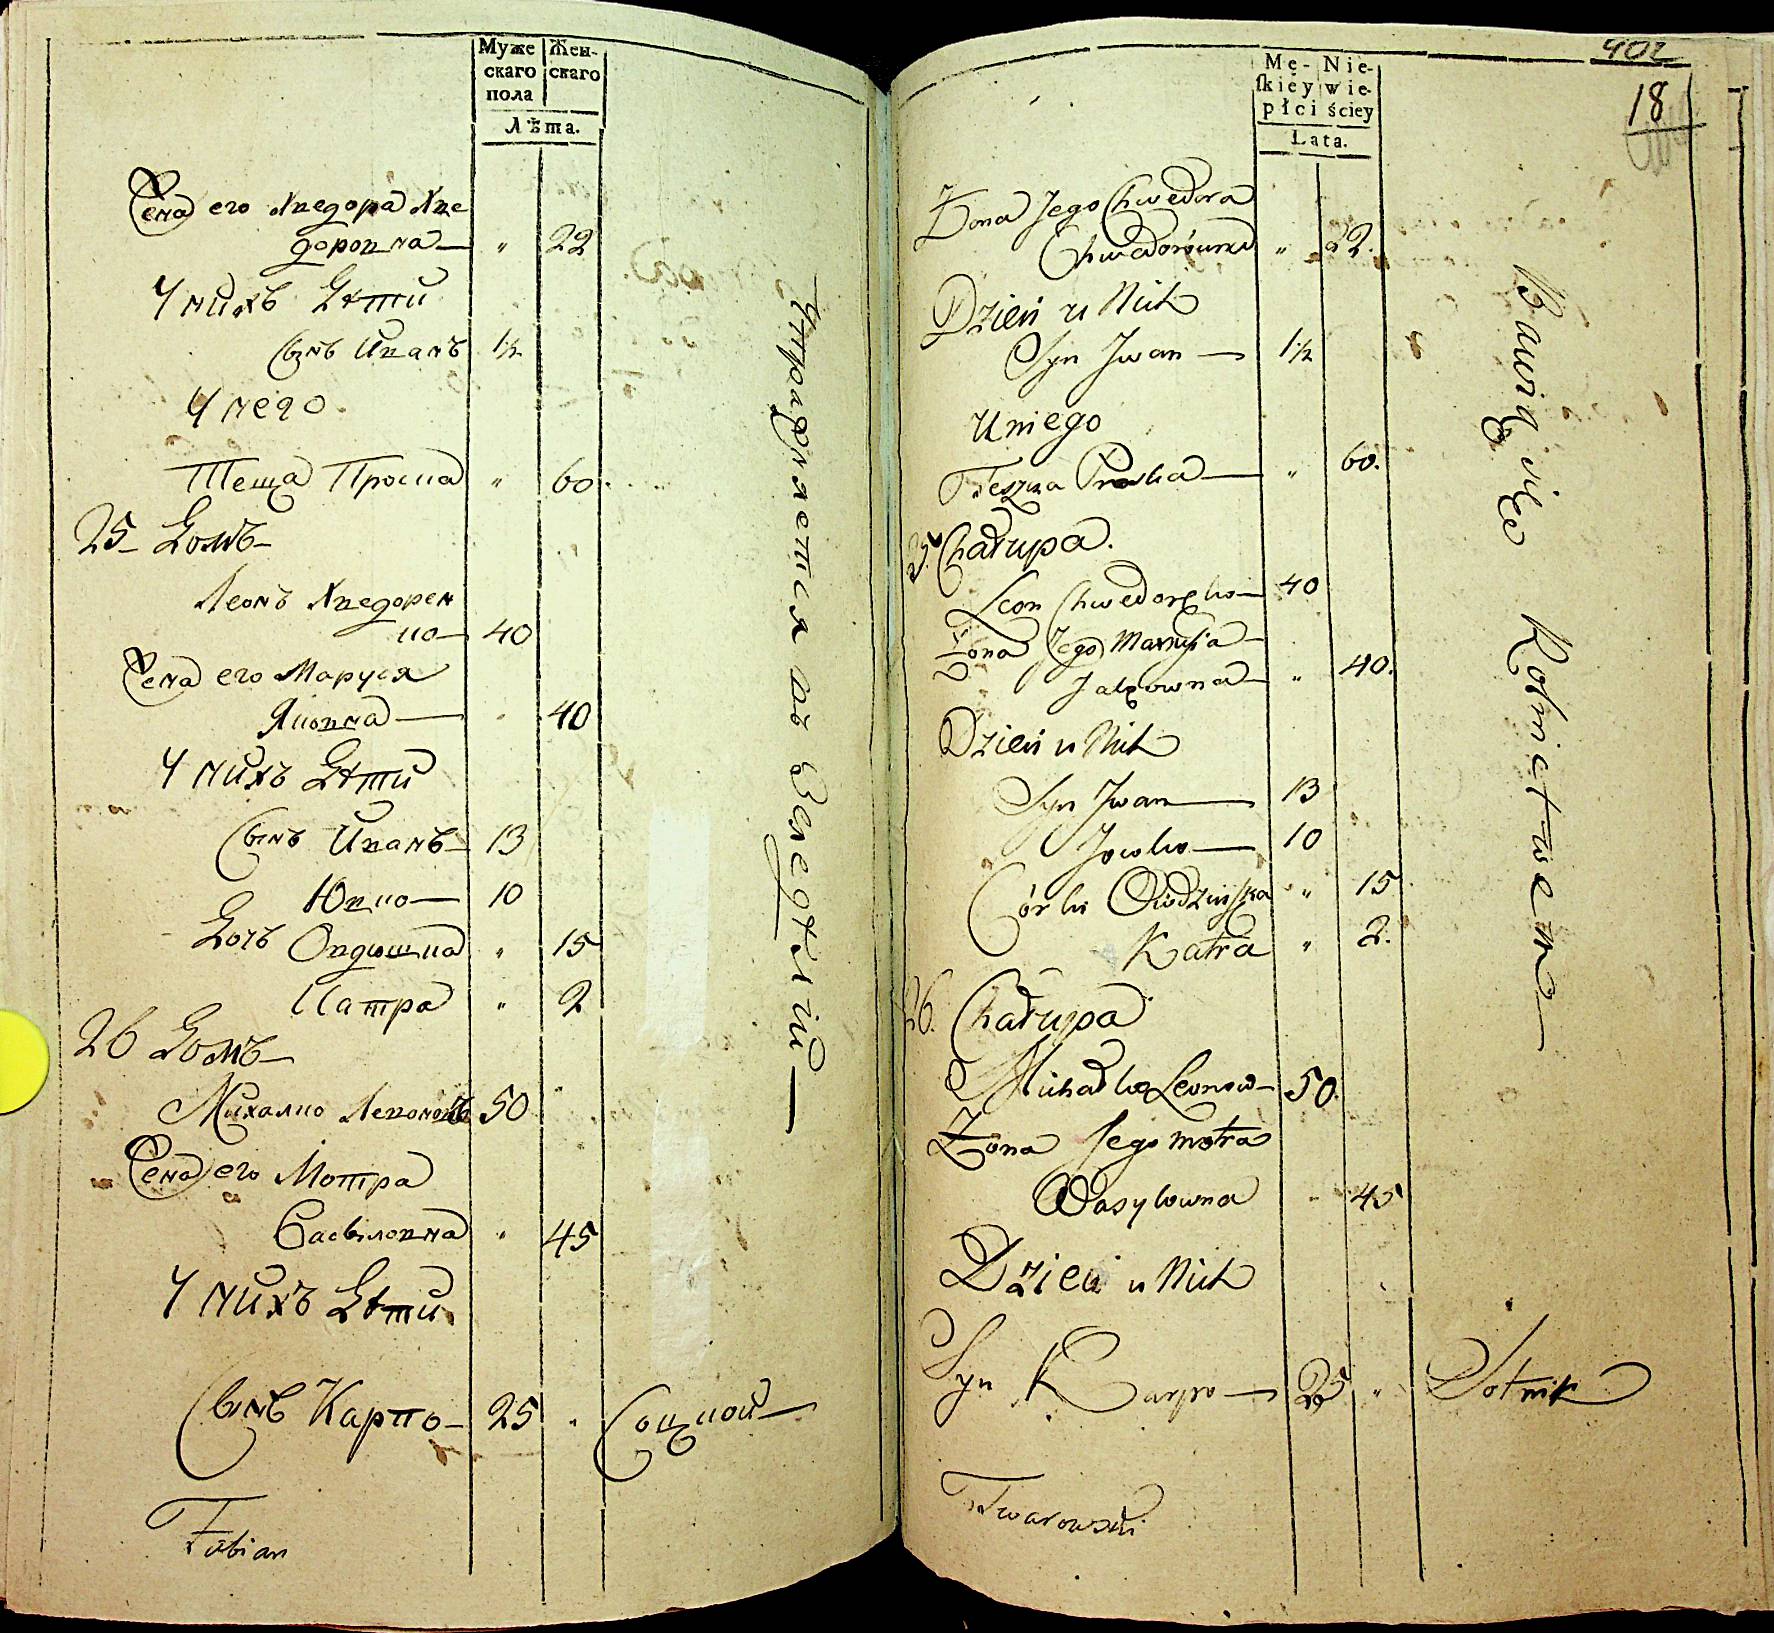 Муже
скаго
пола
Жен-
скаго
Лѣта.
Жена его Хведора Хве
доровна — " 22
У нихъ Дѣти
Сынъ Иванъ 1½
У него
Теща Проска " 60
25 Домъ
Леонъ Хведорен
ко — 40
Жена его Маруся
Яковна — " 40
У нихъ Дѣти
Сынъ Иванъ — 13
Юско — 10
Дочь Овдюшка " 15
Катра " 2
26 Домъ
Михалко Левоновъ 50
Жена его Мотра
Васыловна " 45
У нихъ Дѣти
Сынъ Карпо — 25 " Соцкой —
Fabian
Упражняется въ Земледѣлiи —
402
18
Mę-
skiéy
płci
Nie-
wie-
ściey
Lata.
Zona Jego Chwedora
Chwedorówna " 22.
Dzieci u Nich
Syn Jwan — 1½
U niego
Teszcza Proska — " 60.
25. Chałupa.
Leon Chwedoręko — 40
Zona Jego Marusia —
Jakowna — " 40.
Dzieci u Nich
Syn Jwan — 13
Jowko — 10
Córki Owdziuszka " 15
Katra " 2.
26. Chałupa
Michałko Leonow — 50.
Zona Jego Motra
Wasylowna 45
Dzieci u Nich
Syn Karpo — 25 " Sotnik
Twarowski
Bawią się Rolnictwem